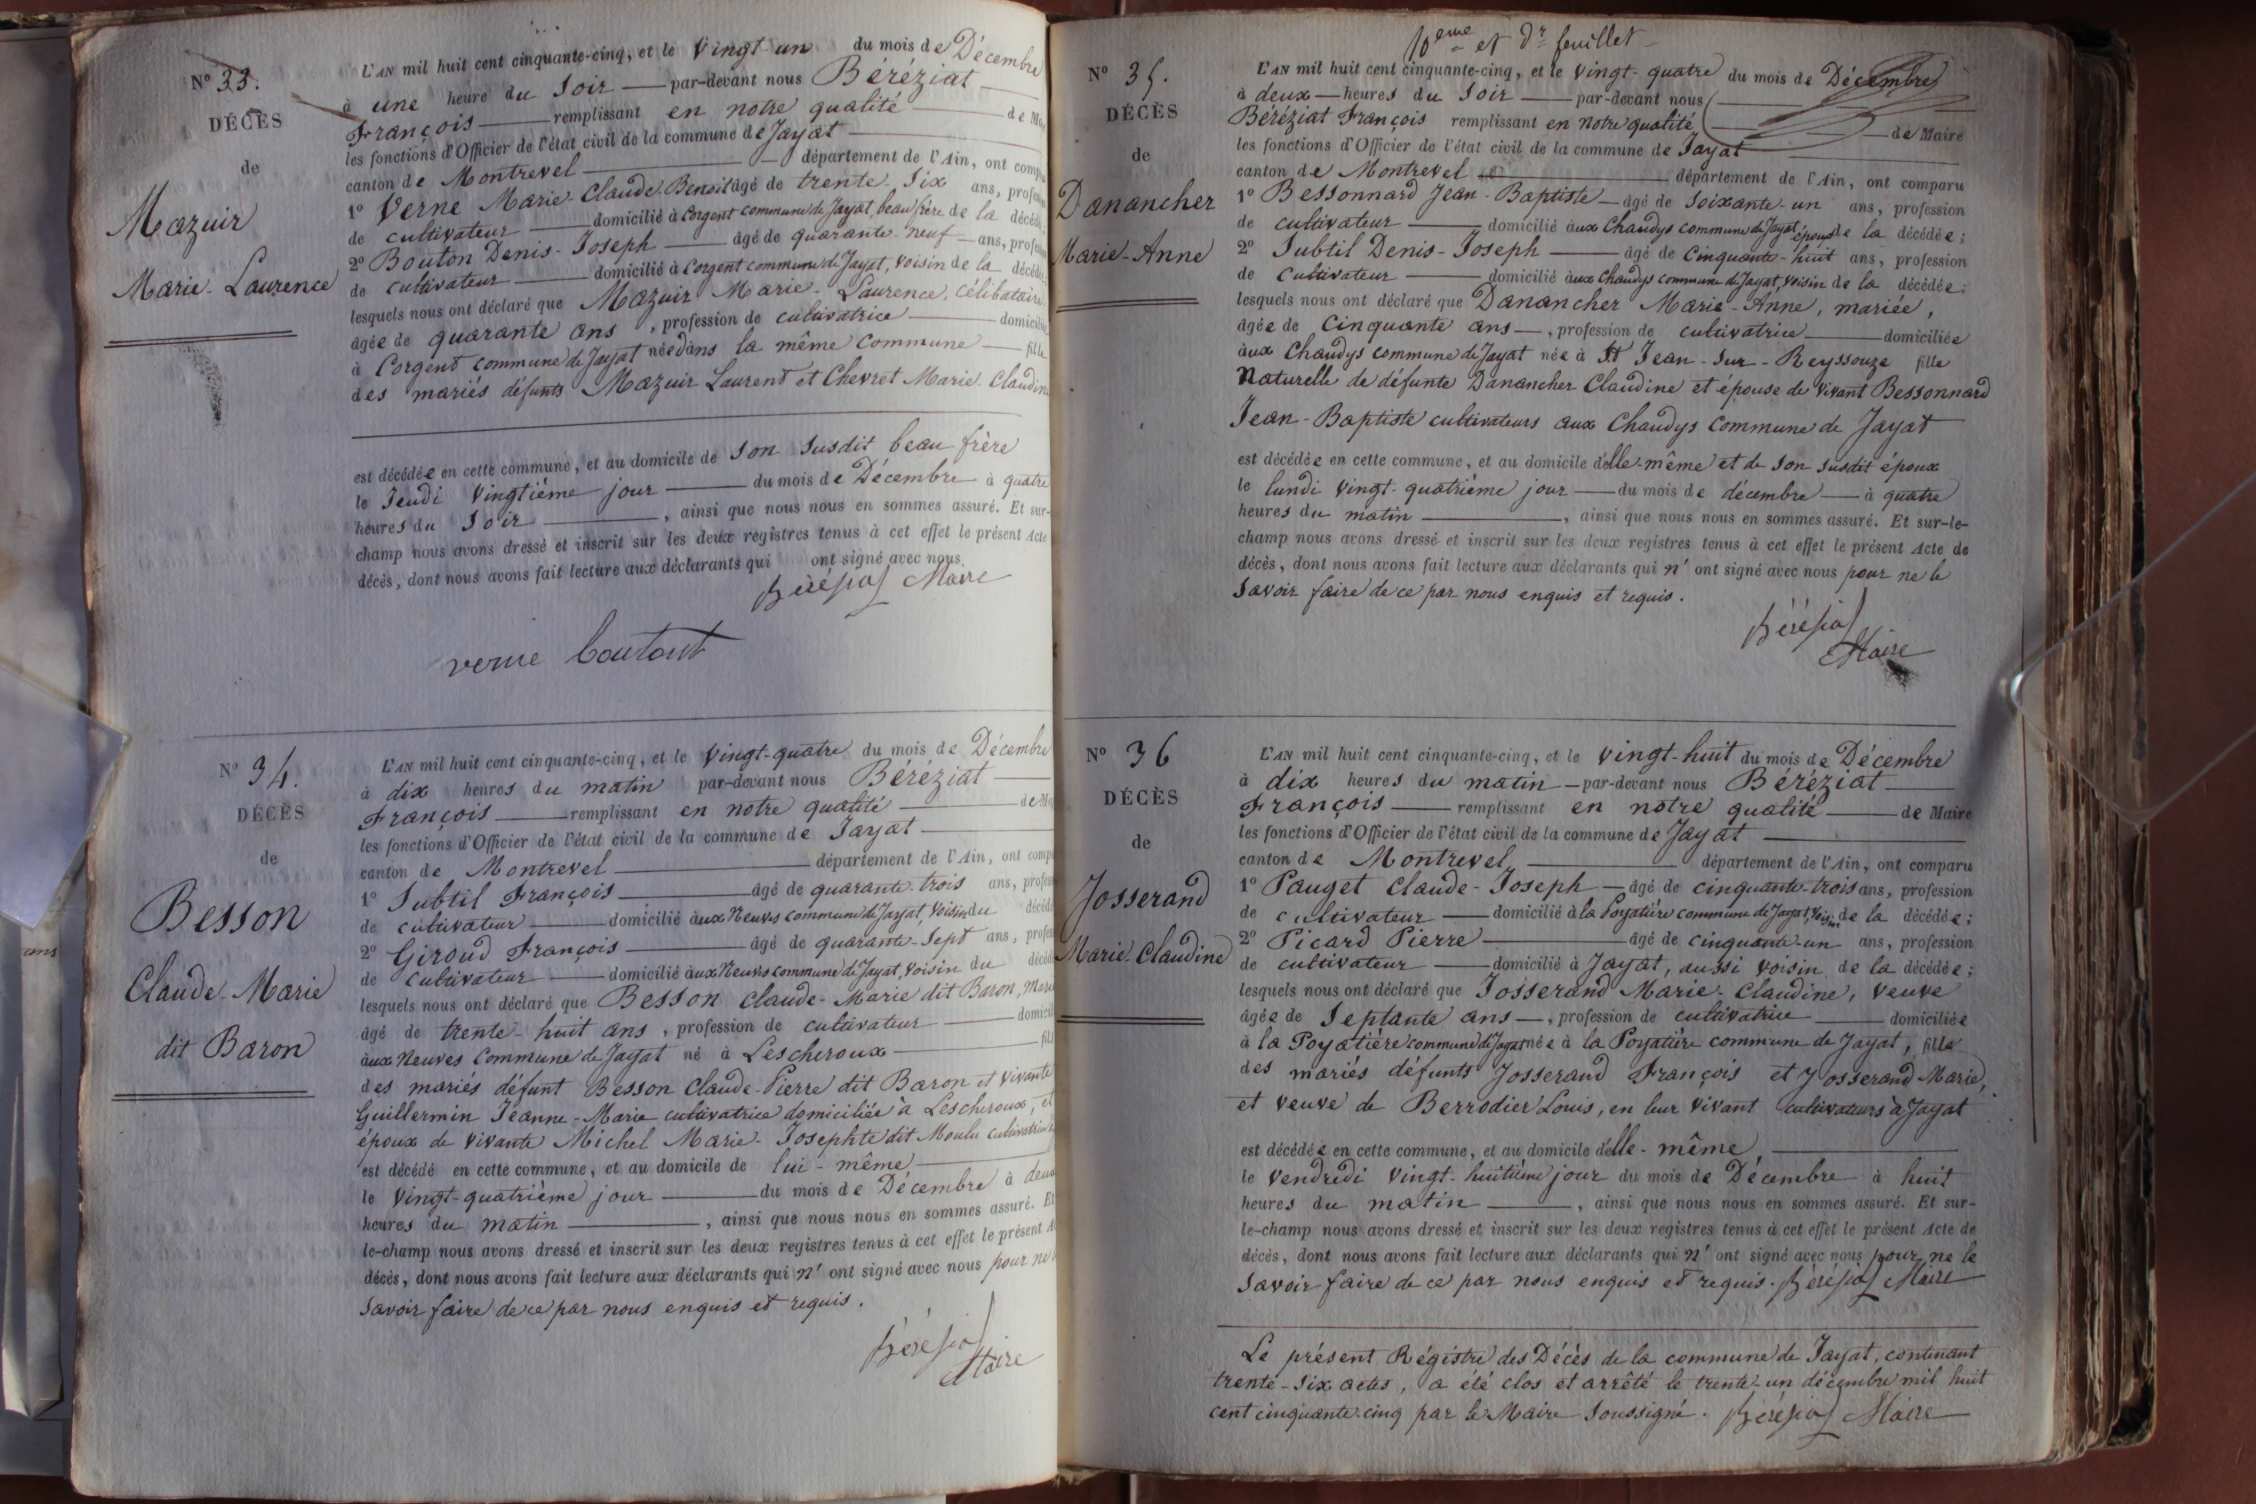 N° 33.
DÉCÈS
de
Mazuir
Marie-Laurence
L'AN mil huit cent cinquante-cinq, et le Vingt-un du mois de Décembre
à une heure du Soir — par-devant nous Béréziat
François — remplissant en notre qualité — de Ma
les fonctions d'Officier de l'état civil de la commune de Jayat
canton de Montrevel — département de l'Ain, ont comp
1° Verne Marie-Claude Benoit âgé de trente-Six ans, profes
de cultivateur — domicilié à Corgent commune de Jayat, beau frère de la décéd
2° Bouton Denis-Joseph — âgé de quarante-neuf — ans, profes
de cultivateur — domicilié à Corgent commune de Jayat, Voisin de la décéd
lesquels nous ont déclaré que Mazuir Marie-Laurence, Célibataire
âgée de quarante ans, profession de cultivatrice — domicili
à Corgent commune de Jayat née dans la même Commune — fille
des mariés défunts Mazuir Laurent et Chevret Marie-Claudine
est décédée en cette commune, et au domicile de Son Susdit beau frère
le Jeudi Vingtième jour — du mois de Décembre à quatre
heures du Soir —, ainsi que nous nous en sommes assuré. Et sur-
champ nous avons dressé et inscrit sur les deux registres tenus à cet effet le présent Acte
décès, dont nous avons fait lecture aux déclarants qui ont signé avec nous.
Béréziat Maire
verne boutout
N° 34.
DÉCÈS
de
Besson
Claude-Marie
dit Baron
L'AN mil huit cent cinquante-cinq, et le Vingt-quatre du mois de Décembre
à dix heures du matin par-devant nous Béréziat —
François — remplissant en notre qualité — de Ma
les fonctions d'Officier de l'état civil de la commune de Jayat —
canton de Montrevel — département de l'Ain, ont comp
1° Subtil François — âgé de quarante-trois ans, profes
de cultivateur — domicilié aux Neuves commune de Jayat, Voisin du décéd
2° Giroud François — âgé de quarante-Sept ans, profes
de cultivateur — domicilié aux Neuves commune de Jayat, Voisin du décéd
lesquels nous ont déclaré que Besson Claude-Marie dit Baron, Mari
âgé de trente-huit ans, profession de cultivateur — domicil
aux Neuves Commune de Jayat né à Lescheroux — fils
des mariés défunt Besson Claude-Pierre dit Baron et Vivante
Guillermin Jeanne-Marie cultivatrice domiciliée à Lescheroux, et
époux de Vivante Michel Marie-Josephte dit Moulu cultivatrice
est décédé en cette commune, et au domicile de lui-même —
le Vingt-quatrième jour — du mois de Décembre à deux
heures du matin —, ainsi que nous nous en sommes assuré. Et
le-champ nous avons dressé et inscrit sur les deux registres tenus à cet effet le présent A
décès, dont nous avons fait lecture aux déclarants qui n' ont signé avec nous pour ne
Savoir faire de ce par nous enquis et requis.
Béréziat
Maire
10eme et dr feuillet
N° 35.
DÉCÈS
de
Danancher
Marie-Anne
L'AN mil huit cent cinquante-cinq, et le Vingt-quatre du mois de Décembre
à deux — heures du Soir — par-devant nous
Béréziat François remplissant en notre qualité — de Maire
les fonctions d'Officier de l'état civil de la commune de Jayat
canton de Montrevel — département de l'Ain, ont comparu
1° Bessonnard Jean-Baptiste — âgé de Soixante-un ans, profession
de cultivateur — domicilié aux Chaudys commune de Jayat, époux de la décédée;
2° Subtil Denis-Joseph — âgé de Cinquante-huit ans, profession
de Cultivateur — domicilié aux Chaudys commune de Jayat, Voisin de la décédée;
lesquels nous ont déclaré que Danancher Marie-Anne, mariée,
âgée de Cinquante ans —, profession de cultivatrice — domiciliée
aux Chaudys commune de Jayat née à St Jean-Sur-Reyssouze fille
Naturelle de défunte Danancher Claudine et épouse de Vivant Bessonnard
Jean-Baptiste cultivateurs aux Chaudys Commune de Jayat
est décédée en cette commune, et au domicile d'elle-même et de Son Susdit époux
le lundi Vingt-quatrième jour — du mois de décembre — à quatre
heures du matin —, ainsi que nous nous en sommes assuré. Et sur-le-
champ nous avons dressé et inscrit sur les deux registres tenus à cet effet le présent Acte de
décès, dont nous avons fait lecture aux déclarants qui n' ont signé avec nous pour ne le
Savoir faire de ce par nous enquis et requis.
Béréziat
Maire
N° 36
DÉCÈS
de
Josserand
Marie-Claudine
L'AN mil huit cent cinquante-cinq, et le Vingt-huit du mois de Décembre
à dix heures du matin — par-devant nous Béréziat —
François — remplissant en notre qualité — de Maire
les fonctions d'Officier de l'état civil de la commune de Jayat —
canton de Montrevel — département de l'Ain, ont comparu
1° Pauget Claude-Joseph — âgé de cinquante-trois ans, profession
de cultivateur — domicilié à la Poyatière commune de Jayat, Voisin de la décédée;
2° Picard Pierre — âgé de cinquante-un ans, profession
de cultivateur — domicilié à Jayat, aussi Voisin de la décédée;
lesquels nous ont déclaré que Josserand Marie-Claudine, Veuve
âgée de Septante ans —, profession de cultivatrice — domiciliée
à la Poyatière commune de Jayat née à la Poyatière commune de Jayat, fille
des mariés défunts Josserand François et Josserand Marie,
et veuve de Berrodier Louis, en leur Vivant cultivateurs à Jayat
est décédée en cette commune, et au domicile d'elle-même, —
le Vendredi Vingt-huitième jour du mois de Décembre à huit
heures du matin —, ainsi que nous nous en sommes assuré. Et sur-
le-champ nous avons dressé et inscrit sur les deux registres tenus à cet effet le présent Acte de
décès, dont nous avons fait lecture aux déclarants qui n' ont signé avec nous pour ne le
Savoir faire de ce par nous enquis et requis. Béréziat Maire
Le présent Régistre des Décès de la commune de Jayat, contenant
trente-Six actes, a été clos et arrêté le trente-un décembre mil huit
cent cinquante-cinq par le Maire Soussigné. Béréziat Maire
ans